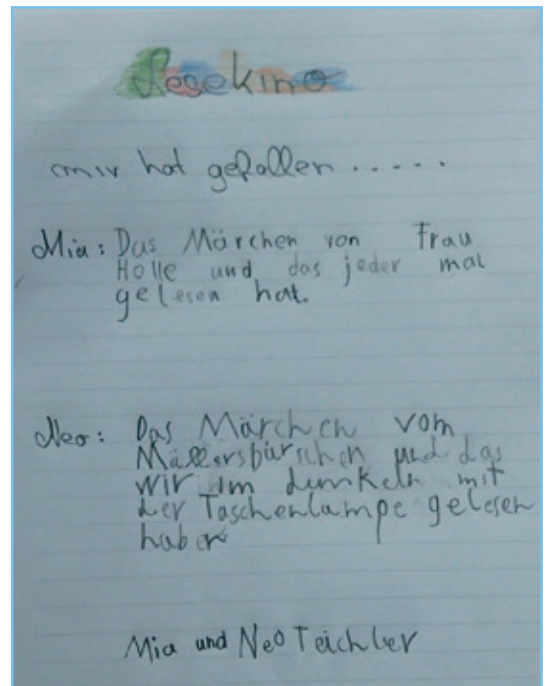 Lesekino
mir hat gefallen.....
Mia: Das Märchen von Frau
Holle und das jeder mal
gelesen hat.
Neo: Das Märchen vom
Müllersburschen und das
wir im dunkeln mit
der Taschenlampe gelesen
haben
Mia und Neo Teichler